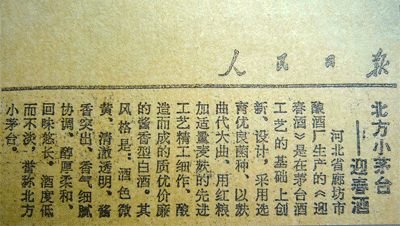 人民日報
北方小茅台
——迎春酒
河北省廊坊市
酿酒厂生产的《迎
春酒》是在茅台酒
工艺的基础上创
新、设计，采用选
育优良菌种，以麸
曲代大曲，用红粮
加适量麦麸的先进
工艺精工细作，酿
造而成的质优价廉
的酱香型白酒。其
风格是：酒色微
黄、清澈透明、酱
香突出、香气细腻
协调、醇厚柔和、
回味悠长。酒度低
而不淡，誉称北方
小茅台。